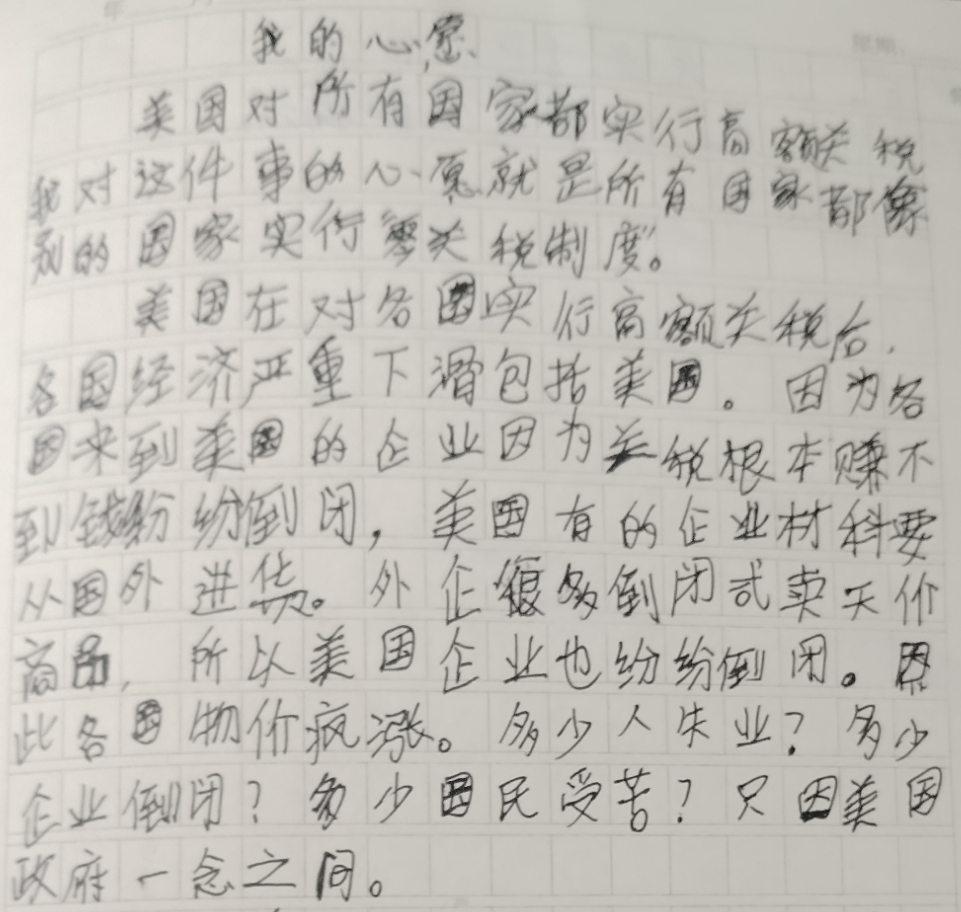 我的心愿
美国对所有国家都实行高额关税
我对这件事的心愿就是所有国家都像
别的国家实行零关税制度。
美国在对各国实行高额关税后,
各国经济严重下滑包括美国。因为各
国来到美国的企业因为关税根本赚不
到钱纷纷倒闭,美国有的企业材料要
从国外进货。外企很多倒闭或卖天价
商品,所以美国企业也纷纷倒闭。因
此各国物价疯涨。多少人失业?多少
企业倒闭?多少国民受苦?只因美国
政府一念之间。